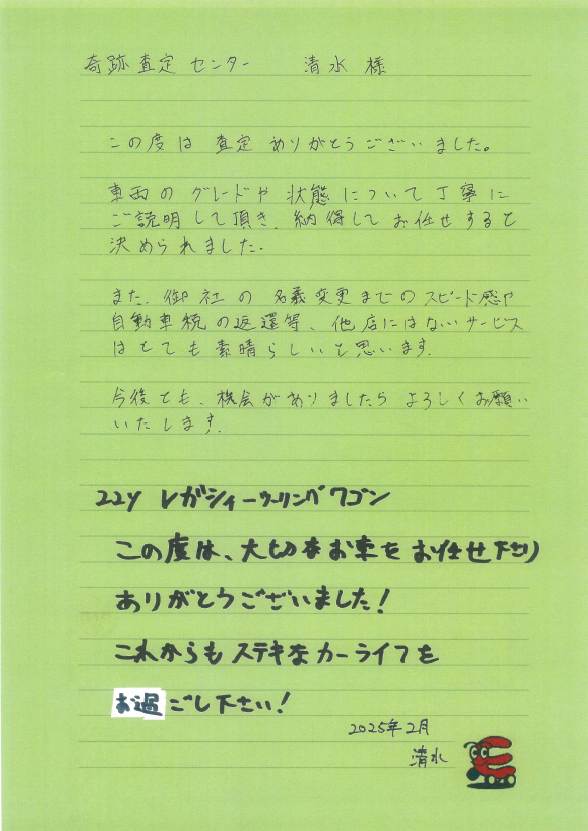 奇跡査定センター 清水様
この度は査定ありがとうございました。
車両のグレードや状態について丁寧に
ご説明して頂き、納得してお任せすると
決められました.
また、御社の名義変更までのスピード感や
自動車税の返還等、他店にはないサービス
はとても素晴らしいと思います.
今後とも、機会がありましたらよろしくお願い
いたします.
22y レガシィーツーリングワゴン
この度は、大切なお車をお任せ下さり
ありがとうございました!
これからもステキなカーライフを
お過ごし下さい!
2025年2月
清水